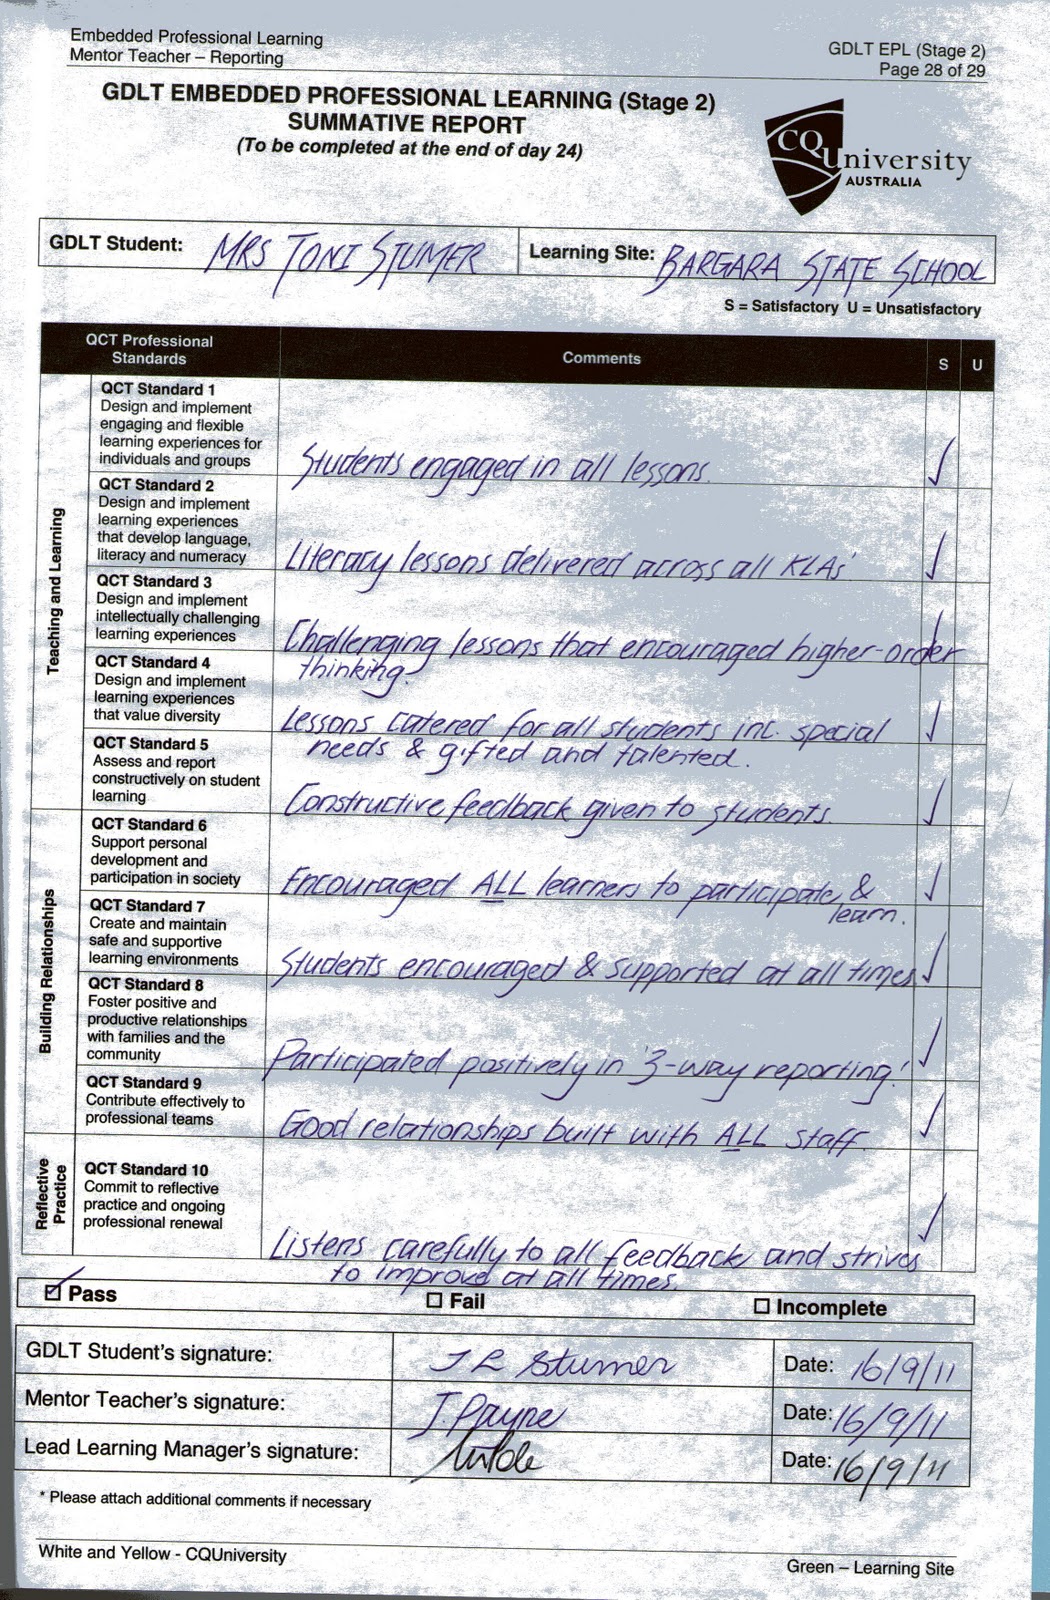 Embedded Professional Learning
Mentor Teacher – Reporting
GDLT EPL (Stage 2)
Page 28 of 29
GDLT EMBEDDED PROFESSIONAL LEARNING (Stage 2)
SUMMATIVE REPORT
(To be completed at the end of day 24)
CQUniversity
AUSTRALIA
GDLT Student: MRS TONI STUMER
Learning Site: BARGARA STATE SCHOOL
S = Satisfactory U = Unsatisfactory
QCT Professional
Standards
Comments
S
U
Teaching and Learning
QCT Standard 1
Design and implement
engaging and flexible
learning experiences for
individuals and groups
Students engaged in all lessons.
✓
QCT Standard 2
Design and implement
learning experiences
that develop language,
literacy and numeracy
Literacy lessons delivered across all KLAs'
✓
QCT Standard 3
Design and implement
intellectually challenging
learning experiences
Challenging lessons that encouraged higher-order
thinking.
✓
QCT Standard 4
Design and implement
learning experiences
that value diversity
Lessons catered for all students inc. special
needs & gifted and talented.
✓
QCT Standard 5
Assess and report
constructively on student
learning
Constructive feedback given to students.
✓
Building Relationships
QCT Standard 6
Support personal
development and
participation in society
Encouraged ALL learners to participate &
learn.
✓
QCT Standard 7
Create and maintain
safe and supportive
learning environments
Students encouraged & supported at all times
✓
QCT Standard 8
Foster positive and
productive relationships
with families and the
community
Participated positively in '3-way reporting!'
✓
QCT Standard 9
Contribute effectively to
professional teams
Good relationships built with ALL staff.
✓
Reflective
Practice
QCT Standard 10
Commit to reflective
practice and ongoing
professional renewal
Listens carefully to all feedback and strives
to improve at all times.
✓
☑ Pass
☐ Fail
☐ Incomplete
GDLT Student's signature: J L Stumer Date: 16/9/11
Mentor Teacher's signature: J. Payne Date: 16/9/11
Lead Learning Manager's signature: Date: 16/9/11
* Please attach additional comments if necessary
White and Yellow - CQUniversity
Green – Learning Site